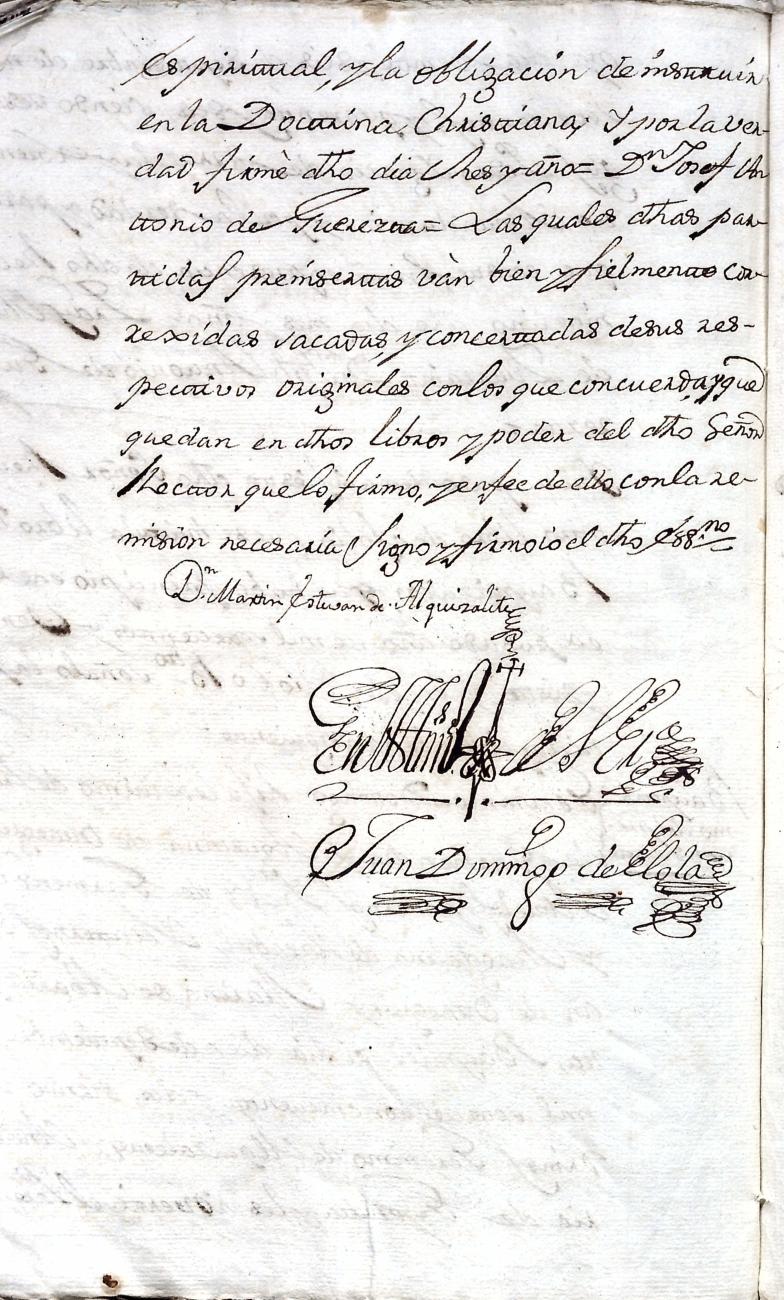 espiritual, y la obligacion de instruir
en la Doctrina Christiana, y por la ver-
dad firmè dho dia Mes y año= Dn Josef An
tonio de Guerizta= Las quales dhas par-
tidas preinsertas vàn bien y fielmente cor-
rexidas sacadas, y concertadas de sus res-
pectivos originales con los que concuerda, y que
quedan en dhos libros y poder del dho Señor
Rector que lo firmo, y en fee de ello con la re-
mision necesaria Signo y firmo io el dho Essno
Dn Martin Estevan de Alquizalete
En testimo de Ver
Juan Domingo de Elola